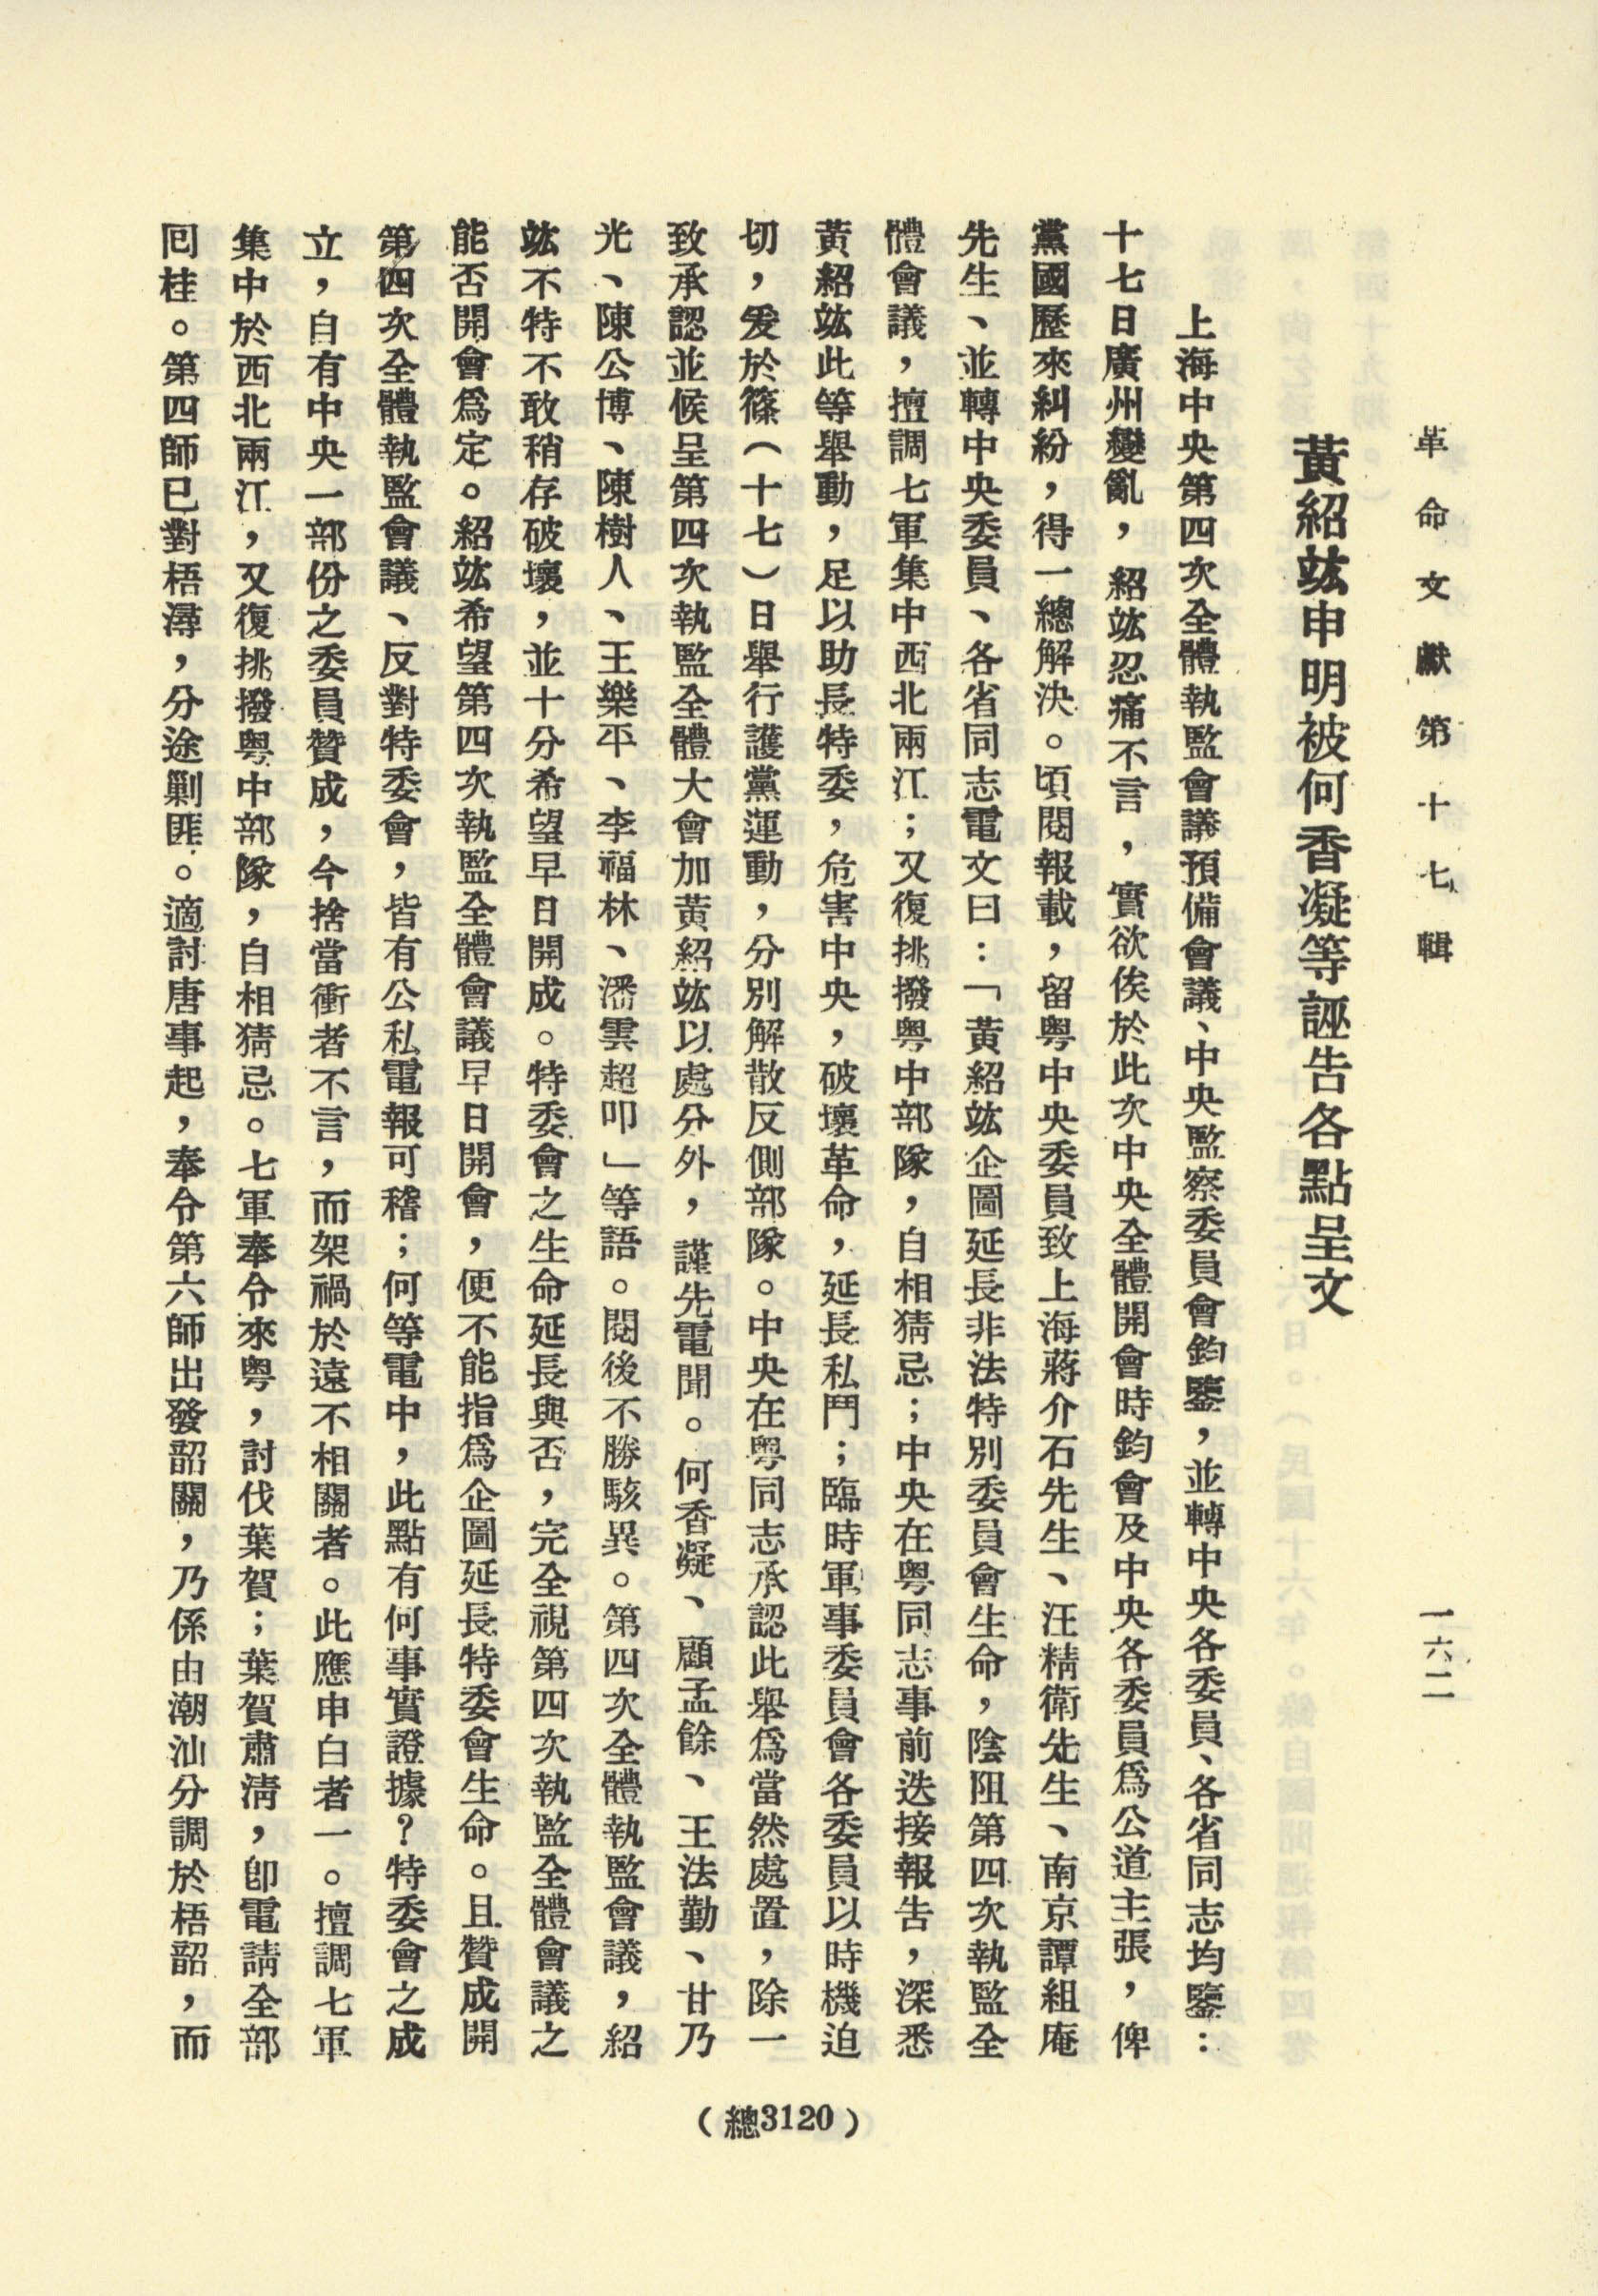 革命文獻第十七輯
一六二
黃紹竑申明被何香凝等誣告各點呈文
上海中央第四次全體執監會議預備會議、中央監察委員會鈞鑒，並轉中央各委員、各省同志均鑒：
十七日廣州變亂，紹竑忍痛不言，實欲俟於此次中央全體開會時鈞會及中央各委員爲公道主張，俾
黨國歷來糾紛，得一總解決。頃閱報載，留粵中央委員致上海蔣介石先生、汪精衛先生、南京譚組庵
先生、並轉中央委員、各省同志電文曰：「黃紹竑企圖延長非法特別委員會生命，陰阻第四次執監全
體會議，擅調七軍集中西北兩江；又復挑撥粵中部隊，自相猜忌；中央在粵同志事前迭接報告，深悉
黃紹竑此等舉動，足以助長特委，危害中央，破壞革命，延長私鬥；臨時軍事委員會各委員以時機迫
切，爰於篠（十七）日舉行護黨運動，分別解散反側部隊。中央在粵同志承認此舉爲當然處置，除一
致承認並候呈第四次執監全體大會加黃紹竑以處分外，謹先電聞。何香凝、顧孟餘、王法勤、甘乃
光、陳公博、陳樹人、王樂平、李福林、潘雲超叩」等語。閱後不勝駭異。第四次全體執監會議，紹
竑不特不敢稍存破壞，並十分希望早日開成。特委會之生命延長與否，完全視第四次執監全體會議之
能否開會爲定。紹竑希望第四次執監全體會議早日開會，便不能指爲企圖延長特委會生命。且贊成開
第四次全體執監會議、反對特委會，皆有公私電報可稽；何等電中，此點有何事實證據？特委會之成
立，自有中央一部份之委員贊成，今捨當衝者不言，而架禍於遠不相關者。此應申白者一。擅調七軍
集中於西北兩江，又復挑撥粵中部隊，自相猜忌。七軍奉令來粵，討伐葉賀；葉賀肅清，卽電請全部
囘桂。第四師已對梧潯，分途剿匪。適討唐事起，奉令第六師出發韶關，乃係由潮汕分調於梧韶，而
（總3120）